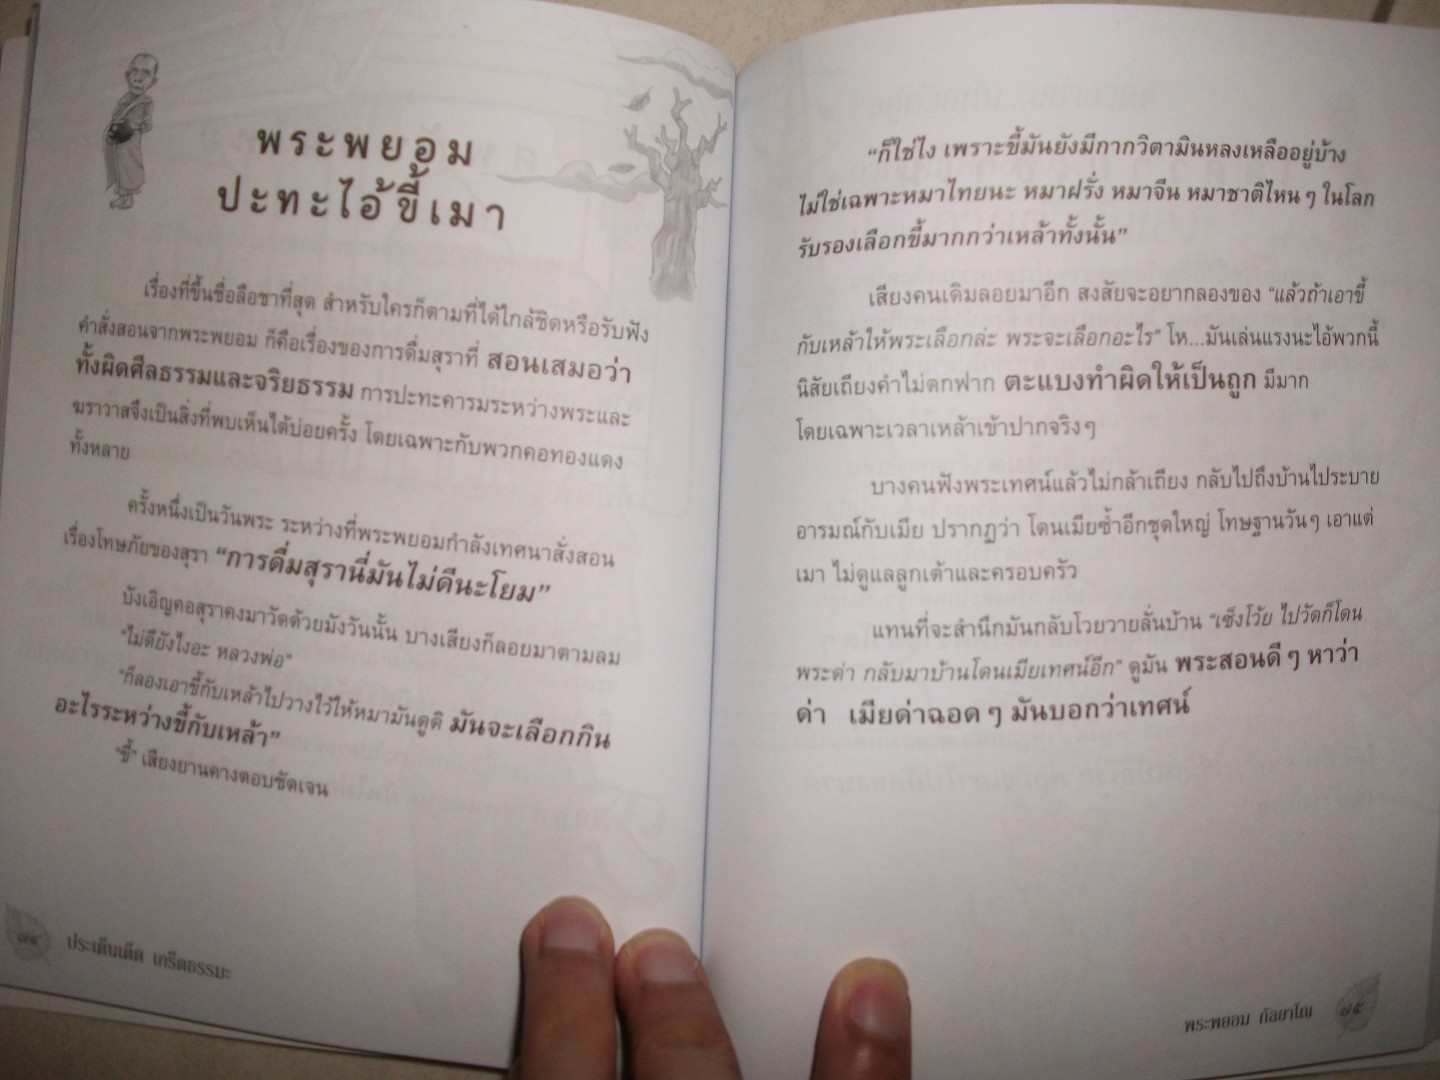 พระพยอม
ปะทะไอ้ขี้เมา
เรื่องที่ขึ้นชื่อลือชาที่สุด สำหรับใครก็ตามที่ได้ใกล้ชิดหรือรับฟัง
คำสั่งสอนจากพระพยอม ก็คือเรื่องของการดื่มสุราที่ สอนเสมอว่า
ทั้งผิดศีลธรรมและจริยธรรม การปะทะคารมระหว่างพระและ
ฆราวาสจึงเป็นสิ่งที่พบเห็นได้บ่อยครั้ง โดยเฉพาะกับพวกคอทองแดง
ทั้งหลาย
ครั้งหนึ่งเป็นวันพระ ระหว่างที่พระพยอมกำลังเทศนาสั่งสอน
เรื่องโทษภัยของสุรา “การดื่มสุรานี่มันไม่ดีนะโยม”
บังเอิญคอสุราคงมาวัดด้วยมังวันนั้น บางเสียงก็ลอยมาตามลม
“ไม่ดียังไงอะ หลวงพ่อ”
“ก็ลองเอาขี้กับเหล้าไปวางไว้ให้หมามันดูดิ มันจะเลือกกิน
อะไรระหว่างขี้กับเหล้า”
“ขี้” เสียงยานคางตอบชัดเจน
๗๔ ประเด็นเด็ด เกร็ดธรรมะ
“ก็ใช่ไง เพราะขี้มันยังมีกากวิตามินหลงเหลืออยู่บ้าง
ไม่ใช่เฉพาะหมาไทยนะ หมาฝรั่ง หมาจีน หมาชาติไหนๆ ในโลก
รับรองเลือกขี้มากกว่าเหล้าทั้งนั้น”
เสียงคนเดิมลอยมาอีก สงสัยจะอยากลองของ “แล้วถ้าเอาขี้
กับเหล้าให้พระเลือกล่ะ พระจะเลือกอะไร” โห...มันเล่นแรงนะไอ้พวกนี้
นิสัยเถียงคำไม่ตกฟาก ตะแบงทำผิดให้เป็นถูก มีมาก
โดยเฉพาะเวลาเหล้าเข้าปากจริงๆ
บางคนฟังพระเทศน์แล้วไม่กล้าเถียง กลับไปถึงบ้านไประบาย
อารมณ์กับเมีย ปรากฏว่า โดนเมียซ้ำอีกชุดใหญ่ โทษฐานวันๆ เอาแต่
เมา ไม่ดูแลลูกเต้าและครอบครัว
แทนที่จะสำนึกมันกลับโวยวายลั่นบ้าน “เซ็งโว้ย ไปวัดก็โดน
พระด่า กลับมาบ้านโดนเมียเทศน์อีก” ดูมัน พระสอนดีๆ หาว่า
ด่า เมียด่าฉอดๆ มันบอกว่าเทศน์
พระพยอม กัลยาโณ ๗๕